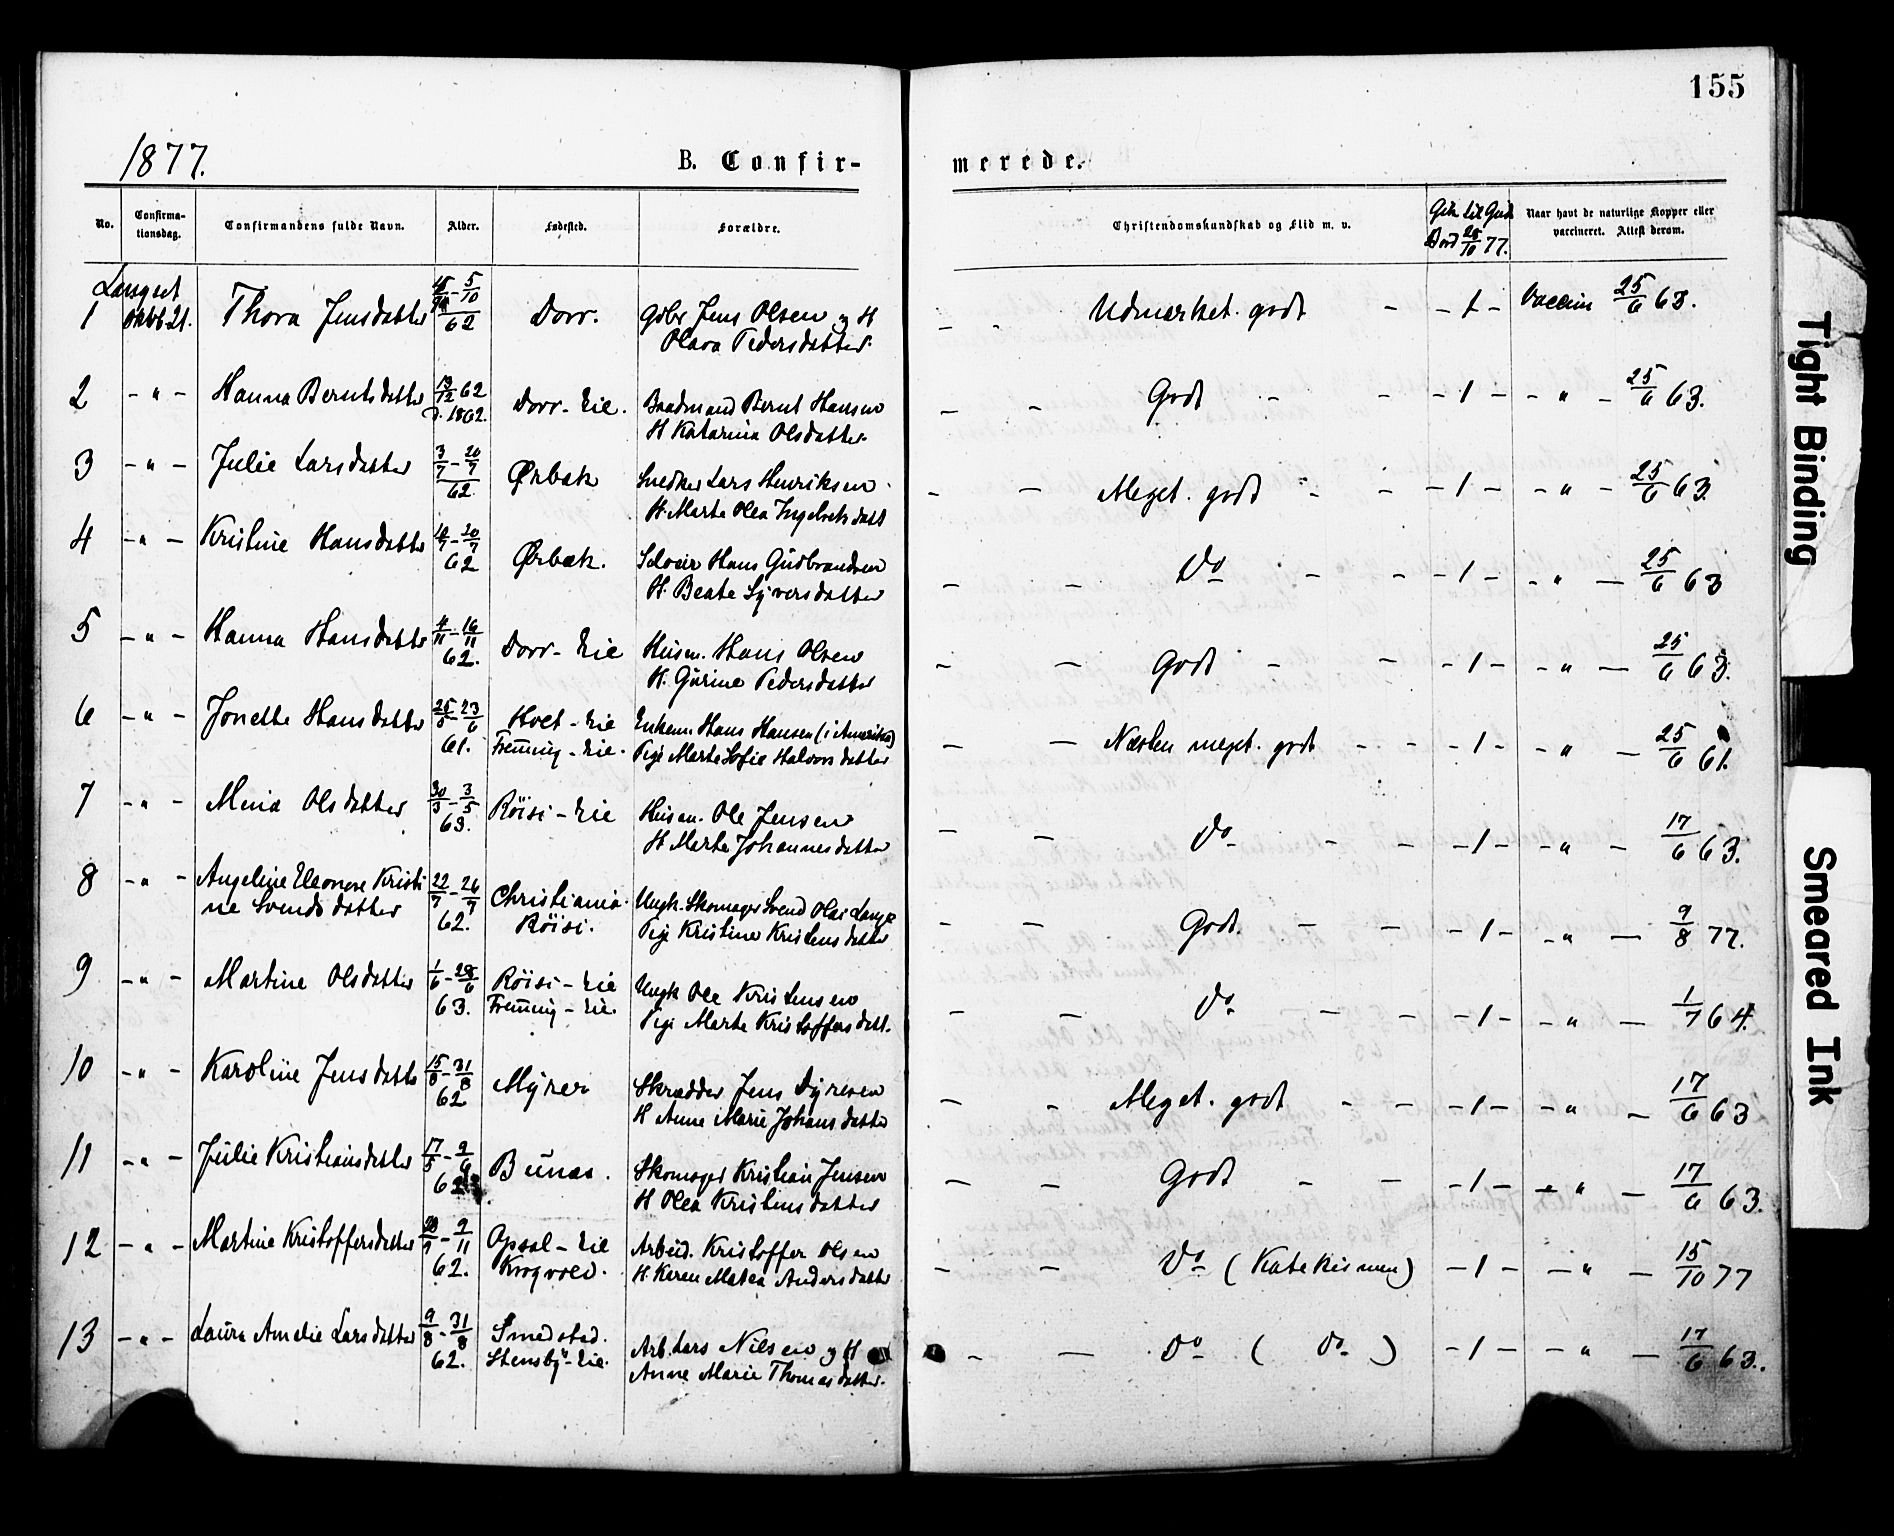 155
1877.
B. Confirmerede.
No. Confirmationsdag. Confirmandens fulde Navn. Alder. Fødested. Forældre. Christendomskundskab og Flid m. v. Gik til Guds Bord 28/10 77. Naar havt de naturlige Kopper eller vaccineret. Attest derom.
Langset
1 Oktb 21. Thora Jensdatter 5/10 62 Dorr. Gdbr Jens Olsen og H
Olava Pedersdatter. Udmærket godt - - 1 - Vaccin 25/6 63.
2 - " - Hanna Berntsdatter 13/12 62 Dorr-Eie. Baadmand Bernt Hansen
d. 1862. H Katarina Olsdatter. - - Godt - - - 1 - - " - 25/6 63.
3 - " - Julie Larsdatter 3/7 - 20/7 62 Ørbæk Snedker Lars Henriksen
H. Marte Olea Ingebretsdatt - - Meget godt - - - 1 - - " - 25/6 63.
4 - " - Kristine Hansdatter 20/7 62 Ørbæk. Selveier Hans Gudbrandsen
H. Beate Syversdatter - - Do - - - 1 - - " - 25/6 63
5 - " - Hanna Hansdatter 4/11 - 16/11 62. Dorr-Eie Husm. Hans Olsen
H. Gurine Pedersdatter - - Godt - - - 1 - - " - 25/6 63.
6 - " - Jonette Hansdatter 23/6 61. Hvet-Eie Enkem. Hans Hansen (i Amerika)
Fremming-Eie. Pige Marte Sofie Halvorsdatter - - Næsten meget godt - - - 1 - - " - 25/6 61.
7 - " - Mina Olsdatter 30/3 - 3/5 63. Röisi-Eie Husm. Ole Jensen
H Marte Johannesdatter - - Do - - - 1 - - " - 17/6 63.
8 - " - Angeline Eleonore Kristi
ne Svendsdatter 22/7 - 26/7 62. Christiania. Ungk. Skomager Svend Olai Lange
Röisi. Pige Kristine Kristensdatter - - Godt. - - - 1 - - " - 9/8 77.
9 - " - Martine Olsdatter 1/6 - 28/6 63. Röisi-Eie Ungk Ole Kristensen
Fremming-Eie. Pige Marte Kristoffersdatt. - - Do - - - 1 - - " - 1/7 64.
10 - " - Karoline Jensdatter 15/8 - 31/8 62 Myrer Skrædder Jens Dyresen
H Anne Marie Johansdatter - - Meget godt - - - 1 - - " - 17/6 63
11 - " - Julie Kristiansdatter 17/5 - 9/6 62 Bunæs. Skomager Kristian Jensen
H Olea Kristensdatter - - Godt - - - 1 - - " - 17/6 63.
12 - " - Martine Kristoffersdatter 9/11 62. Opsal-Eie Arbeid. Kristoffer Olsen
Krogvold. H. Karen Matea Andersdatter - - Do (Katekismen) - 1 - - " - 15/10 77
13 - " - Laura Amelie Larsdatter 9/8 - 31/8 62. Smedstad. Arb. Lars Nilsen og H
Stensby-Eie. Anne Marie Thomasdatter. - - Do ( Do ) - 1 - - " - 17/6 63.
Tight Binding
Smeared Ink